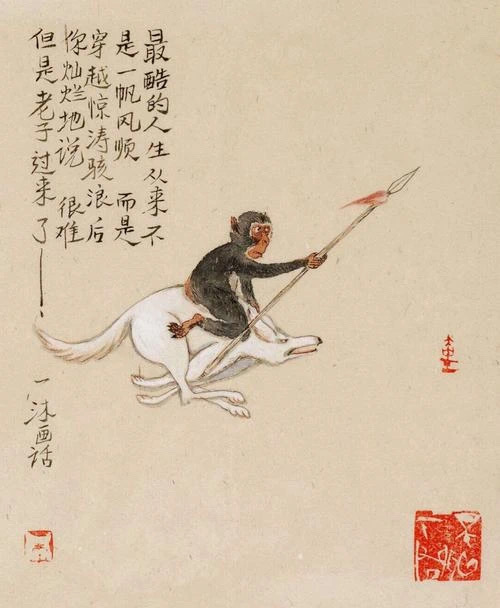 最酷的人生从来不
是一帆风顺 而是
穿越惊涛骇浪后
你灿烂地说 很难
但是老子过来了——!
一沐画话